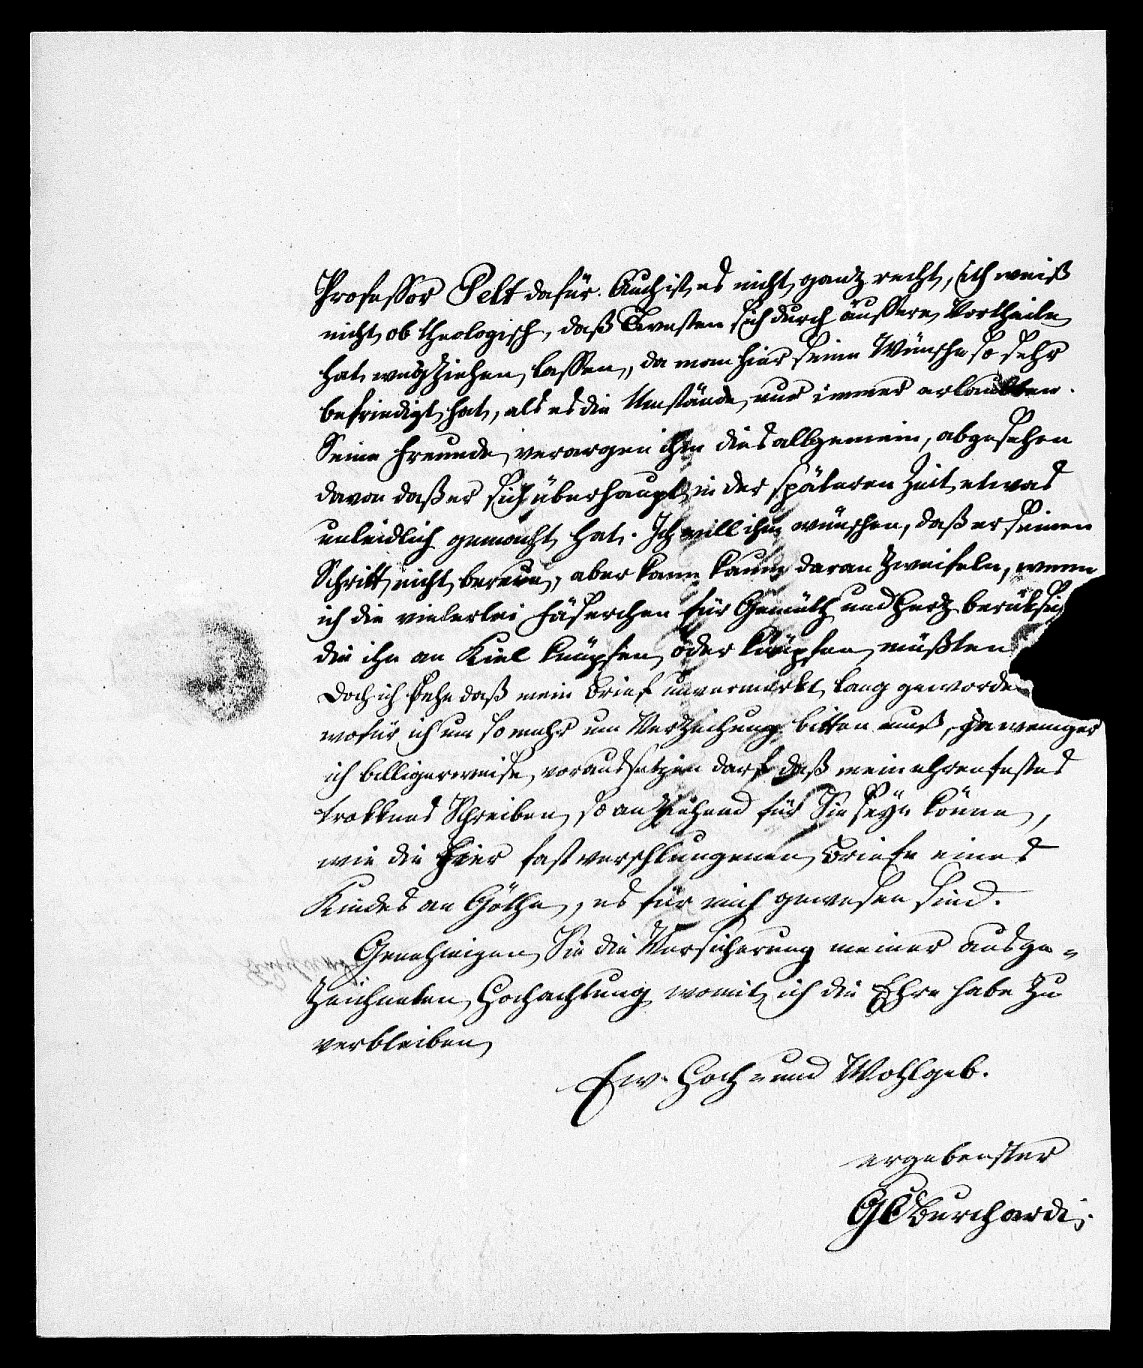 Professor Pelt dafür. Auch ist es nicht ganz recht, ich weiß
nicht ob theologisch, daß Twesten sich durch äussere Vortheile
hat wegziehen lassen, da man hier seine Wünsche so sehr
befriedigt hat, als es die Umstände nur immer erlaubten.
Seine Freunde verargen ihm dies allgemein, abgesehen
davon daß er sich überhaupt in der späteren Zeit etwas
unleidlich gemacht hat. Ich will ihm wünschen, daß er seinen
Schritt nicht bereue, aber kann kaum daran zweifeln, wenn
ich die vielerlei Fäserchen für Gemüth und Herz berüksi
die ihn an Kiel knüpfen oder knüpfen müßten
Doch ich sehe daß mein Brief unvermerkt lang geworde
wofür ich um so mehr um Verzeihung bitten muß, je weniger
ich billigerweise voraussetzen darf daß mein ehrenfestes
trocknes Schreiben so anziehend für Sie seyn könne,
wie die hier fast verschlungenen Briefe eines
Kindes an Göthe, es für mich gewesen sind.
Genehmigen Sie die Versicherung meiner ausge-
zeichneten Hochachtung womit ich die Ehre habe zu
verbleiben
Ew. Hoch- und Wohlgeb.
ergebenster
GCBurchardi.